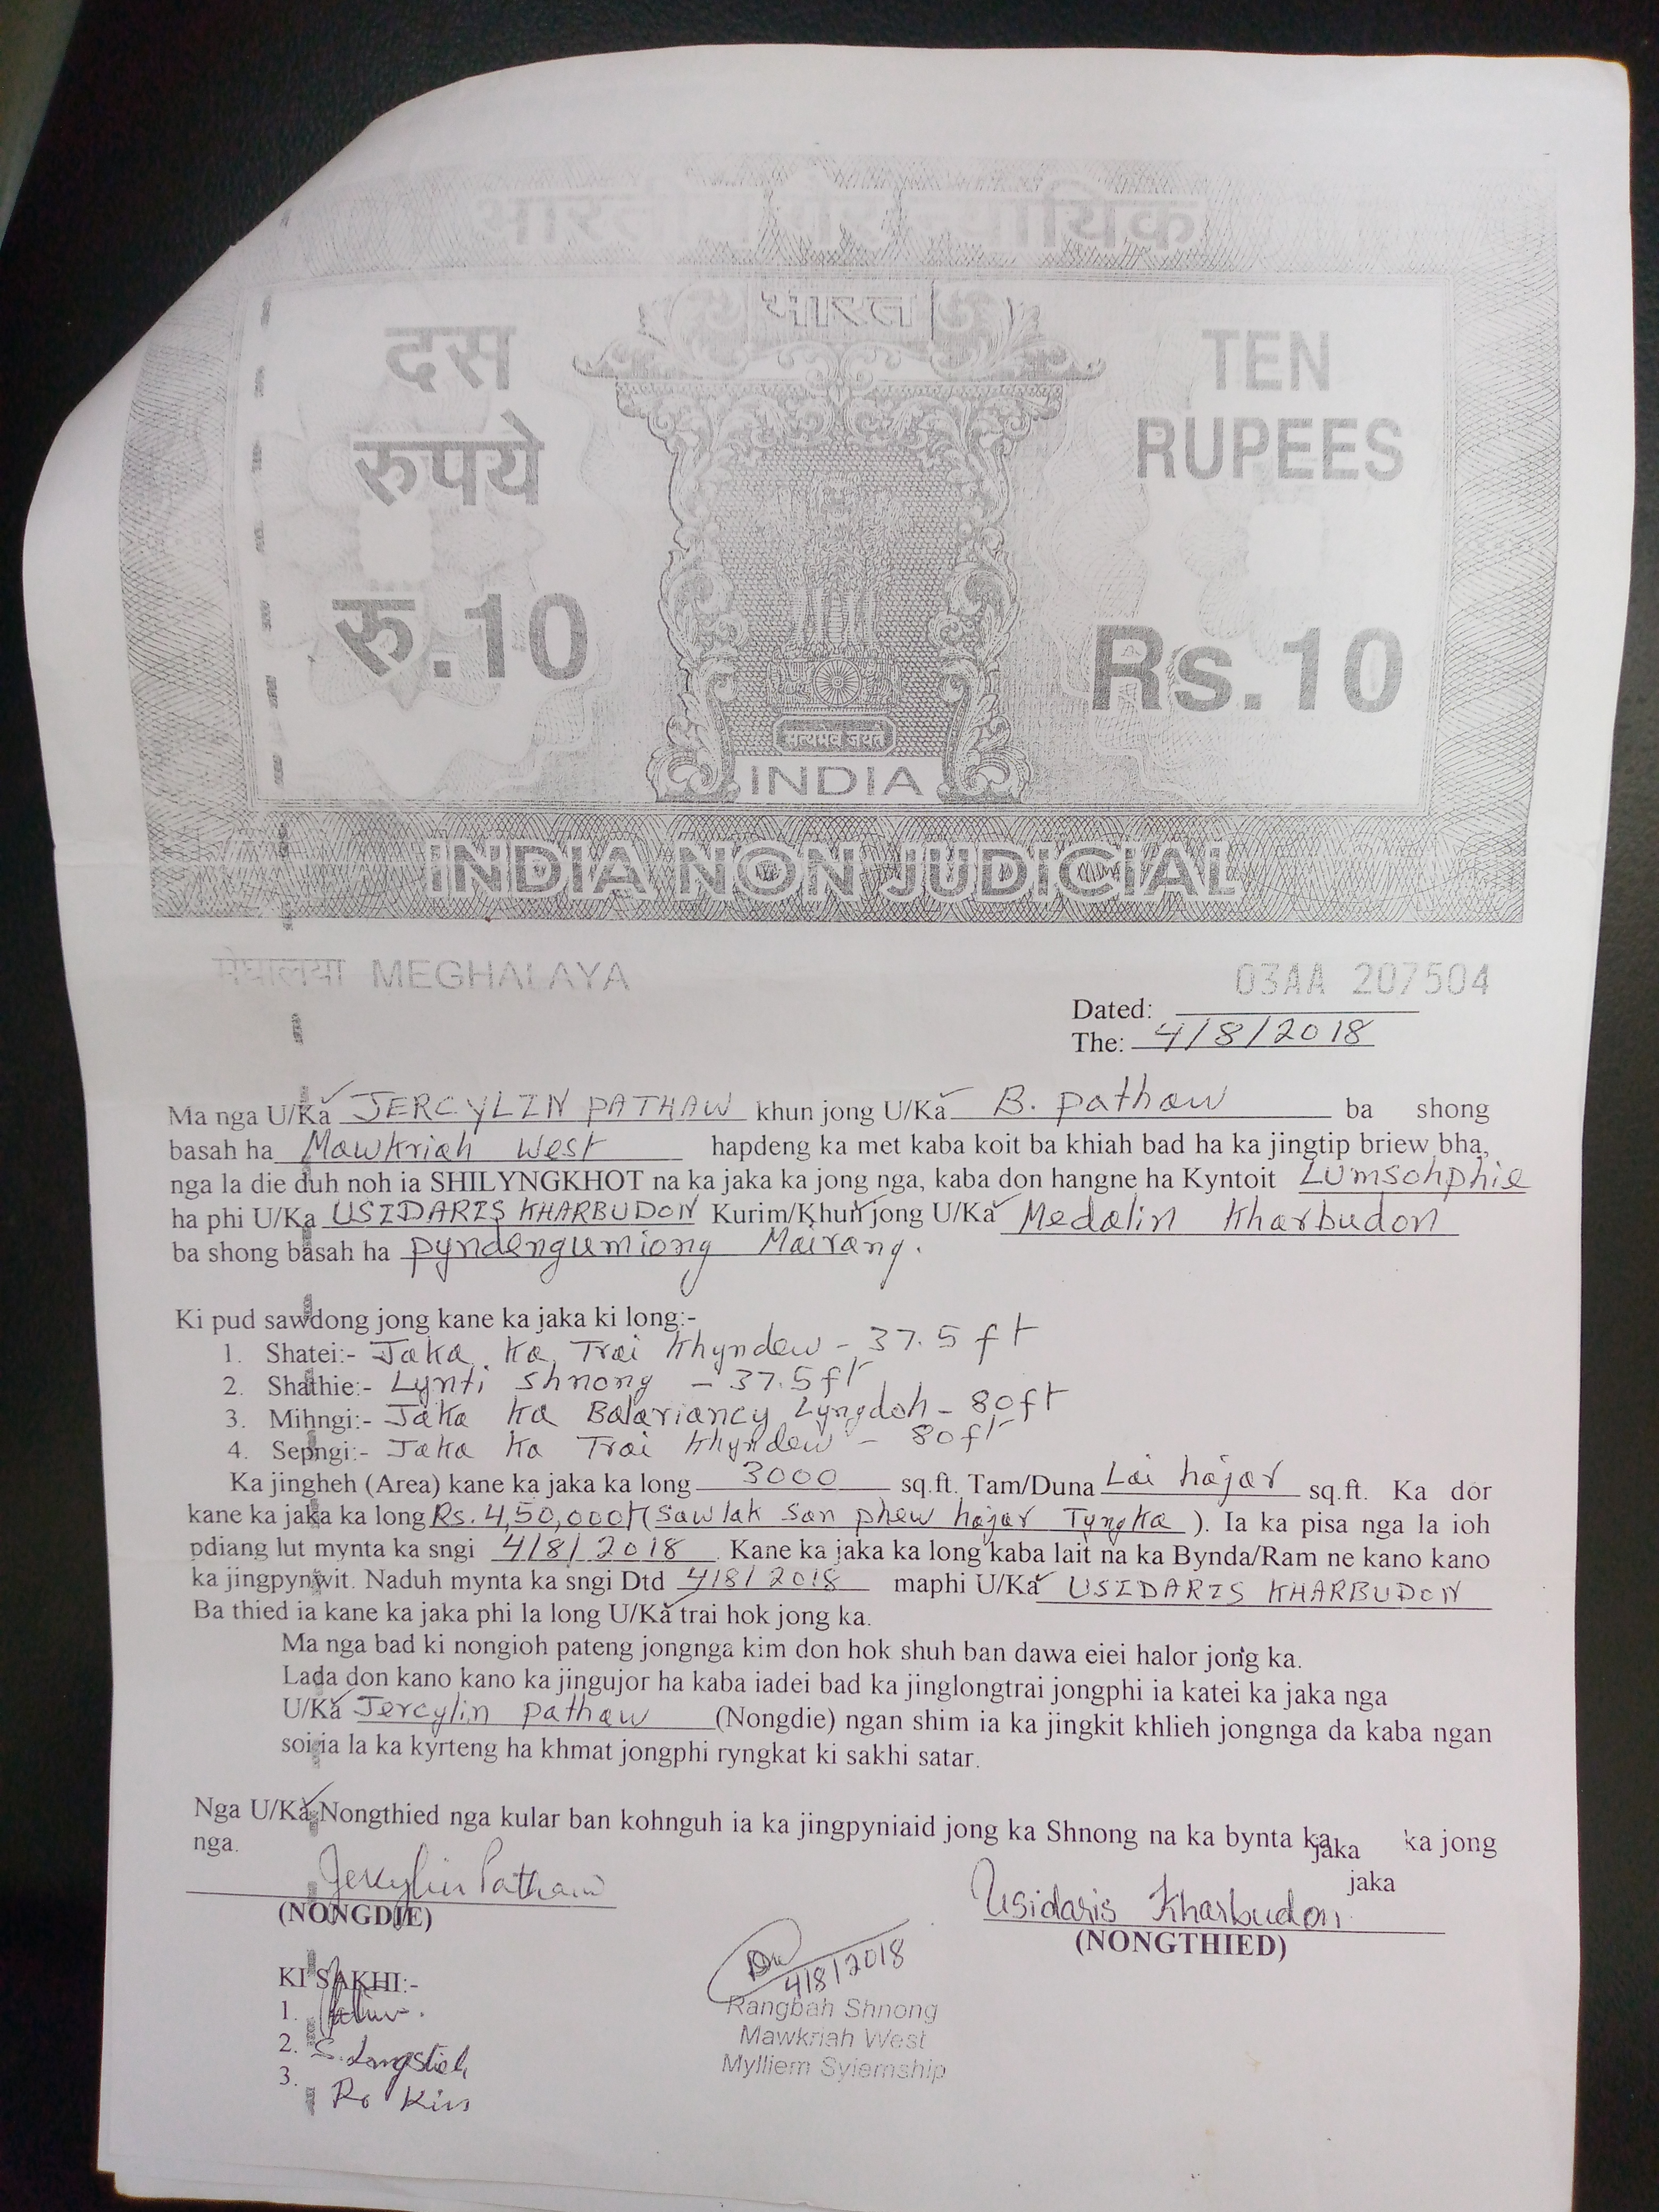 भारतीय गैर न्यायिक
भारत
दस
रुपये
रु.10
TEN
RUPEES
Rs.10
सत्यमेव जयते
INDIA
INDIA NON JUDICIAL
मेघालया MEGHALAYA
03AA 207504
Dated:
The: 4/8/2018
Ma nga U/Ka JERCYLIN PATHAW khun jong U/Ka B. pathaw ba shong
basah ha Mawkriah West hapdeng ka met kaba koit ba khiah bad ha ka jingtip briew bha,
nga la die duh noh ia SHILYNGKHOT na ka jaka ka jong nga, kaba don hangne ha Kyntoit Lumsohphie
ha phi U/Ka USIDARIS KHARBUDON Kurim/Khun jong U/Ka Medalin Kharbudon
ba shong basah ha pyndengumiong Mairang.
Ki pud sawdong jong kane ka jaka ki long:-
1. Shatei:- Jaka ka Trai Khyndew - 37.5 ft
2. Shathie:- Lynti shnong - 37.5 ft
3. Mihngi:- Jaka ka Balariancy Lyngdoh - 80 ft
4. Sepngi:- Jaka ka Trai Khyndew - 80 ft
Ka jingheh (Area) kane ka jaka ka long 3000 sq.ft. Tam/Duna Lai hajar sq.ft. Ka dor
kane ka jaka ka long Rs. 4,50,000/- (Saw lak san phew hajar Tyngka ). Ia ka pisa nga la ioh
pdiang lut mynta ka sngi 4/8/2018 Kane ka jaka ka long kaba lait na ka Bynda/Ram ne kano kano
ka jingpynwit. Naduh mynta ka sngi Dtd 4/8/2018 maphi U/Ka USIDARIS KHARBUDON
Ba thied ia kane ka jaka phi la long U/Ka trai hok jong ka.
Ma nga bad ki nongioh pateng jongnga kim don hok shuh ban dawa eiei halor jong ka.
Lada don kano kano ka jingujor ha kaba iadei bad ka jinglongtrai jongphi ia katei ka jaka nga
U/Ka Jercylin pathaw (Nongdie) ngan shim ia ka jingkit khlieh jongnga da kaba ngan
soi ia la ka kyrteng ha khmat jongphi ryngkat ki sakhi satar.
Nga U/Ka Nongthied nga kular ban kohnguh ia ka jingpyniaid jong ka Shnong na ka bynta ka jaka ka jong
nga.
jaka
Jercylin Pathaw
(NONGDIE)
Usidaris Kharbudon
(NONGTHIED)
KI SAKHI:-
1.
2. S. Langstieh
3.
4/8/2018
Rangbah Shnong
Mawkriah West
Mylliem Syiemship